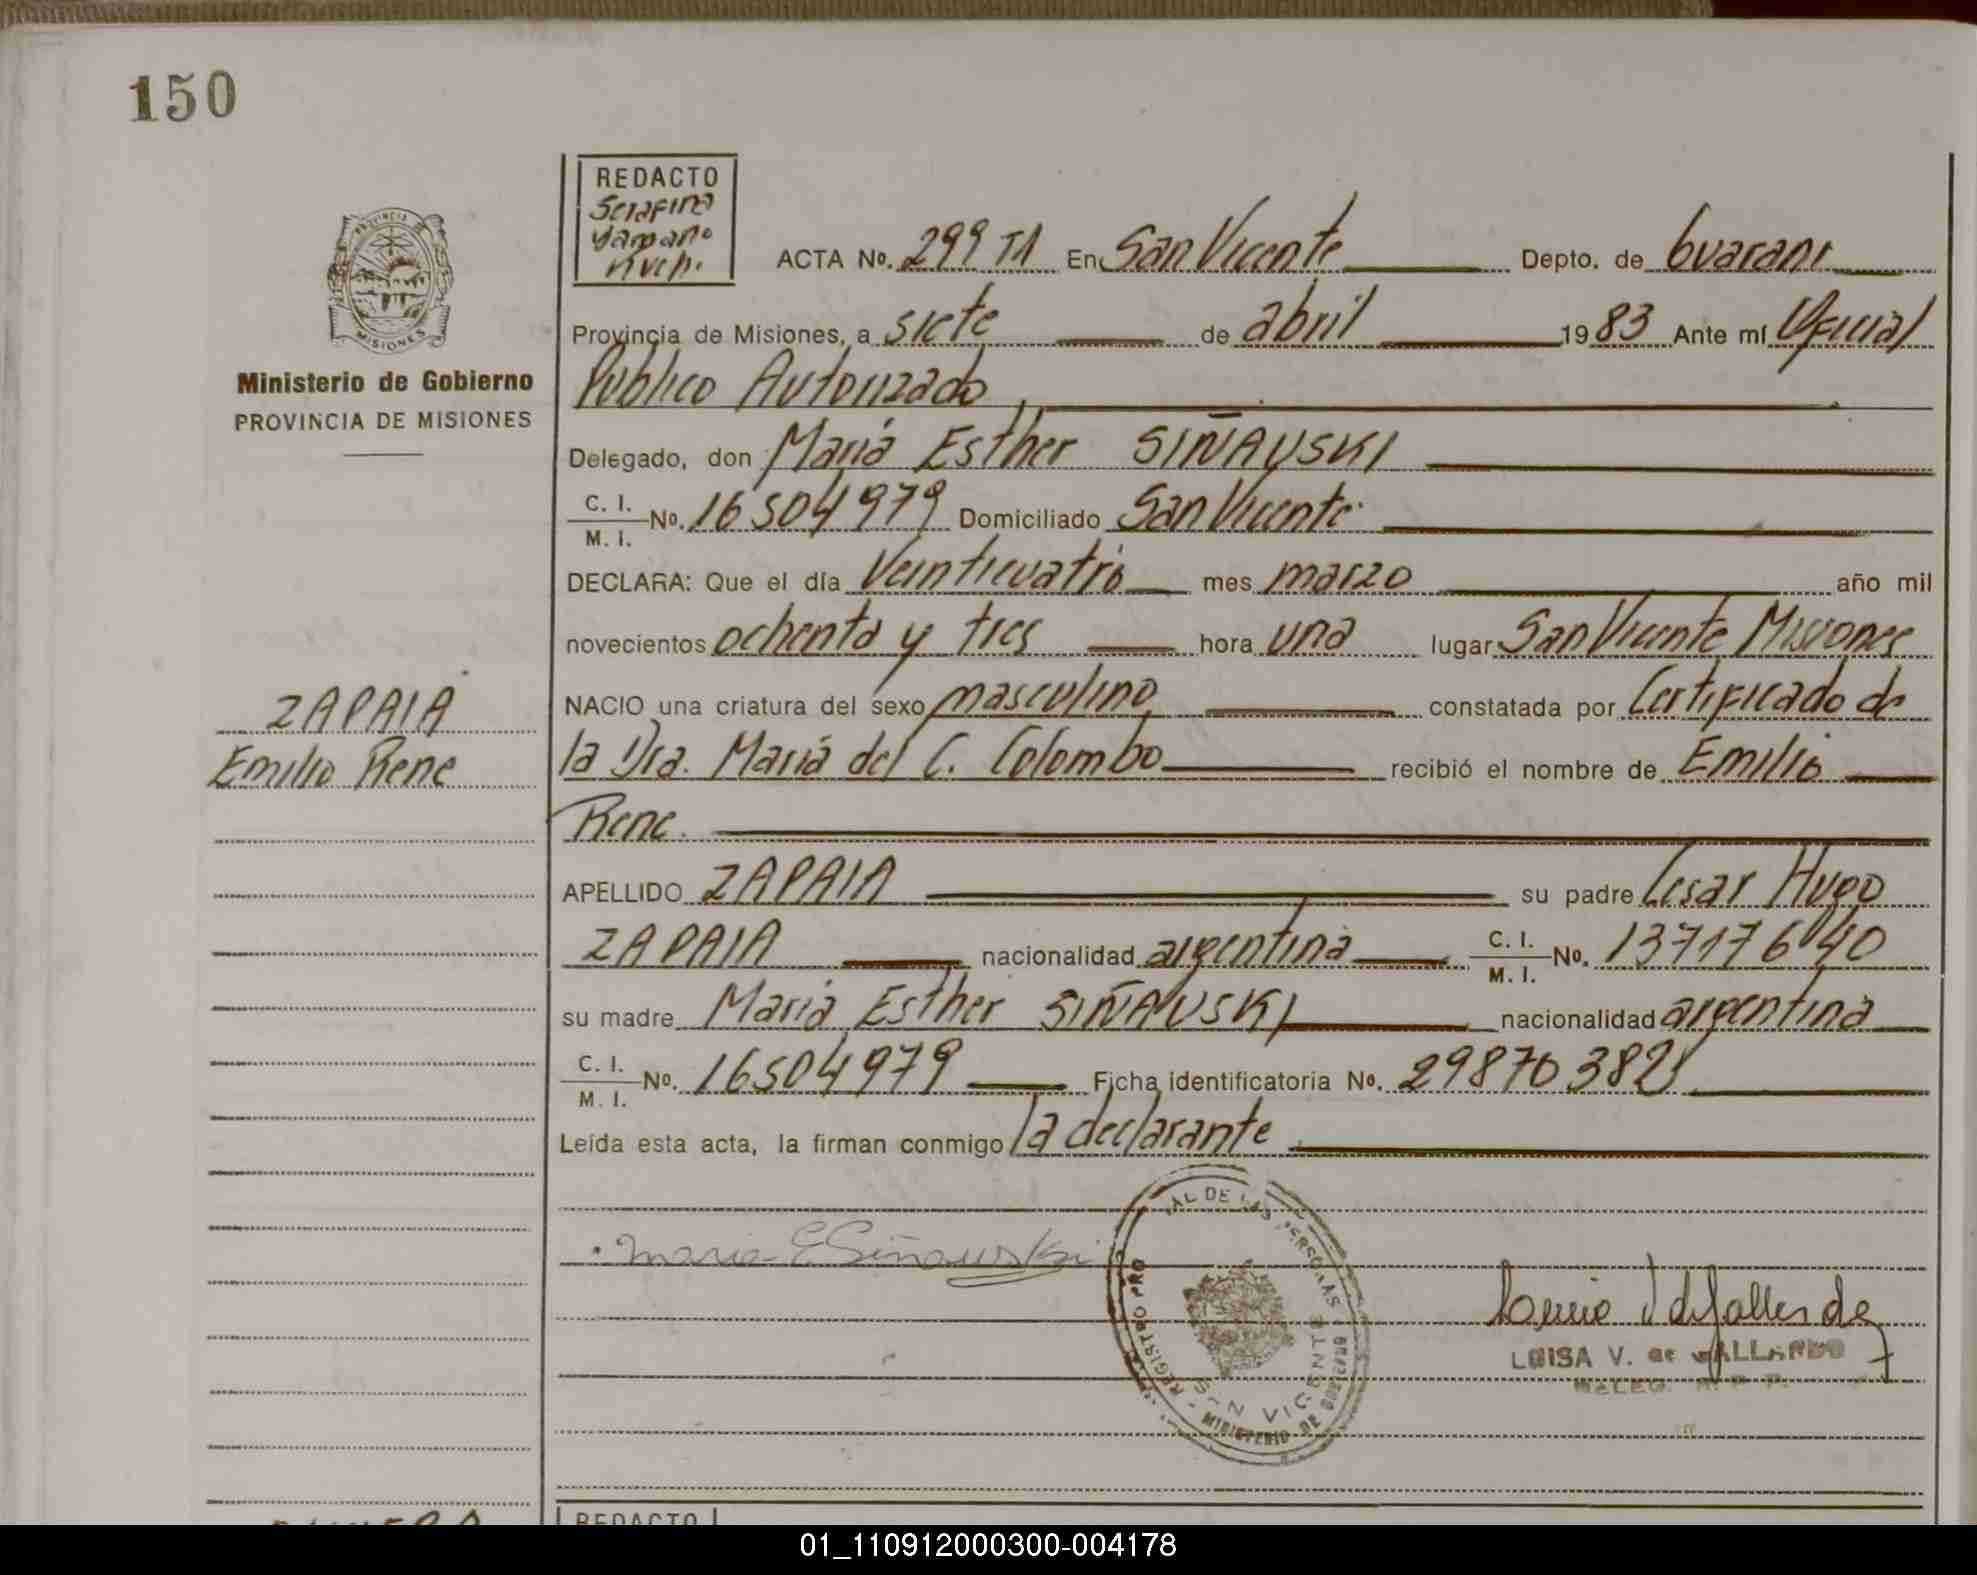 150
REDACTO
Serafina
ACTA No. 299 T1 En San Vicente Depto. de Guarani
Provincia de Misiones, a siete de abril 1983 Ante mí Oficial
Público Autorizado
Ministerio de Gobierno
PROVINCIA DE MISIONES
MISIONES
Delegado, don María Esther SIÑAUSKI
C. I.
M. I. No. 16504979 Domiciliado San Vicente
DECLARA: Que el día Veinticuatro mes marzo año mil
novecientos ochenta y tres hora una lugar San Vicente Misiones
NACIO una criatura del sexo masculino constatada por Certificado de
la Dra. María del C. Colombo recibió el nombre de Emilio
Rene.
ZAPAIA
Emilio Rene
APELLIDO ZAPAIA su padre Cesar Hugo
ZAPAIA nacionalidad argentina C. I.
M. I. No. 13717640
su madre María Esther SIÑAUSKI nacionalidad argentina
C. I.
M. I. No. 16504979 Ficha identificatoria No. 29870382
Leída esta acta, la firman conmigo la declarante
Maria E Siñauski
REGISTRO PRO AL DE LAS PERSONAS
SAN VICENTE
MINISTERIO DE GOBIERNO
LUISA V. de GALLARDO
REDACTO
01_110912000300-004178